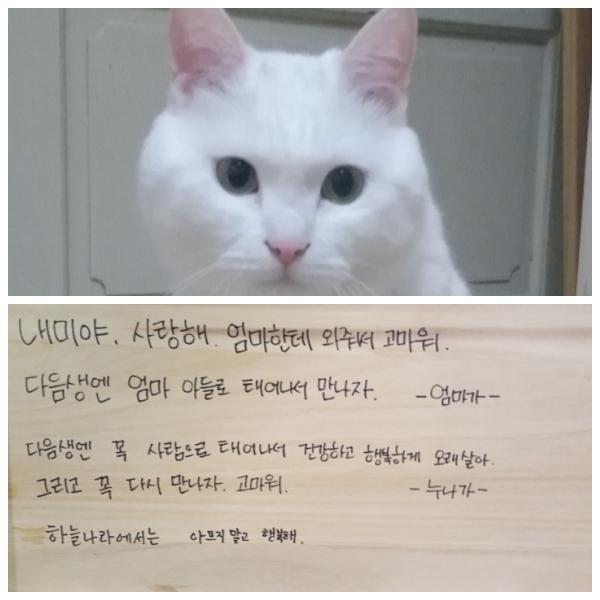 내미야. 사랑해. 엄마한테 와주서 고마워.
다음생엔 엄마 아들로 태어나서 만나자. -엄마가-
다음생엔 꼭 사람으로 태어나서 건강하고 행복하게 오래살아.
그리고 꼭 다시 만나자. 고마워. -누나가-
하늘나라에서는 아프지 말고 행복해.